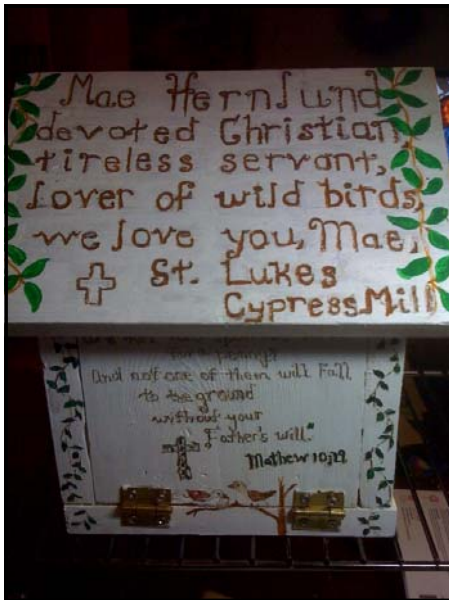 Mae Hernlund
devoted Christian,
tireless servant,
Lover of wild birds,
we love you, Mae,
St. Lukes
Cypress Mill
for a penny?
And not one of them will fall
to the ground
without your
Father's will."
Mathew 10:29